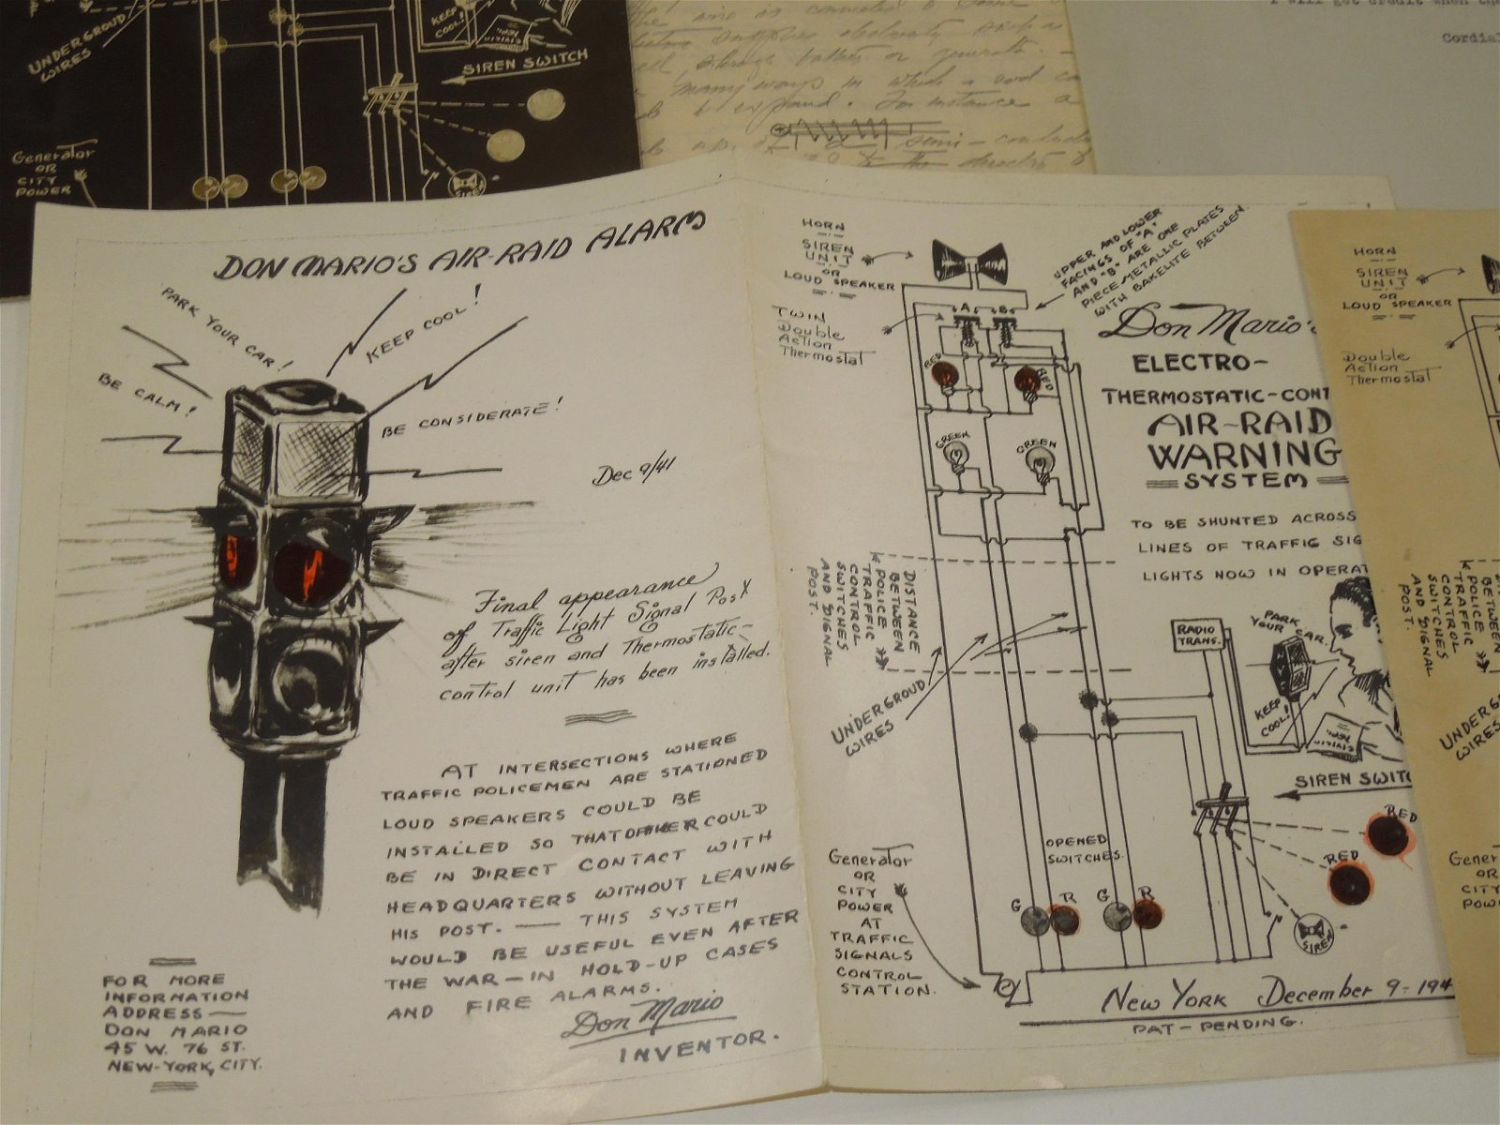 UNDERGROUD
WIRES
KEEP
COOL!
SIREN SWITCH
Generator
OR
CITY
POWER
SIREN
I will get credit when the
Cordial
DON MARIO'S AIR-RAID ALARM
PARK YOUR CAR!
KEEP COOL!
BE CALM!
BE CONSIDERATE!
Dec 9/41
Final appearance
of Traffic Light Signal Post
after siren and Thermostatic-
control unit has been installed.
AT INTERSECTIONS WHERE
TRAFFIC POLICEMEN ARE STATIONED
LOUD SPEAKERS COULD BE
INSTALLED SO THAT OFFICER COULD
BE IN DIRECT CONTACT WITH
HEADQUARTERS WITHOUT LEAVING
HIS POST. — THIS SYSTEM
WOULD BE USEFUL EVEN AFTER
THE WAR — IN HOLD-UP CASES
AND FIRE ALARMS.
Don Mario
INVENTOR.
FOR MORE
INFORMATION
ADDRESS —
DON MARIO
45 W. 76 ST.
NEW-YORK, CITY.
HORN
SIREN
UNIT
OR
LOUD SPEAKER
TWIN
Double
Action
Thermostat
UPPER AND LOWER
FACINGS OF "A"
AND "B" ARE ONE
PIECE-METALLIC PLATES
WITH BAKELITE BETWEEN.
A B
RED
RED
GREEN
GREEN
Don Mario's
ELECTRO-
THERMOSTATIC-CONT
AIR-RAID
WARNING
SYSTEM
TO BE SHUNTED ACROSS
LINES OF TRAFFIC SIG
LIGHTS NOW IN OPERAT
DISTANCE
BETWEEN
POLICE
TRAFFIC
CONTROL
SWITCHES
AND SIGNAL
POST.
UNDERGROUD
WIRES
RADIO
TRANS.
PARK
YOUR CAR.
KEEP
COOL!
SIREN SWITC
RED
RED
OPENED
SWITCHES.
G R G R
SIREN
Generator
OR
CITY
POWER
AT
TRAFFIC
SIGNALS
CONTROL
STATION.
NEW YORK December 9-194
PAT-PENDING.
HORN
SIREN
UNIT
OR
LOUD SPEAKER
Double
Action
Thermostat
BETWEEN
POLICE
TRAFFIC
CONTROL
SWITCHES
AND SIGNAL
POST.
UNDERG
WIRES
Gener
OR
CITY
POW